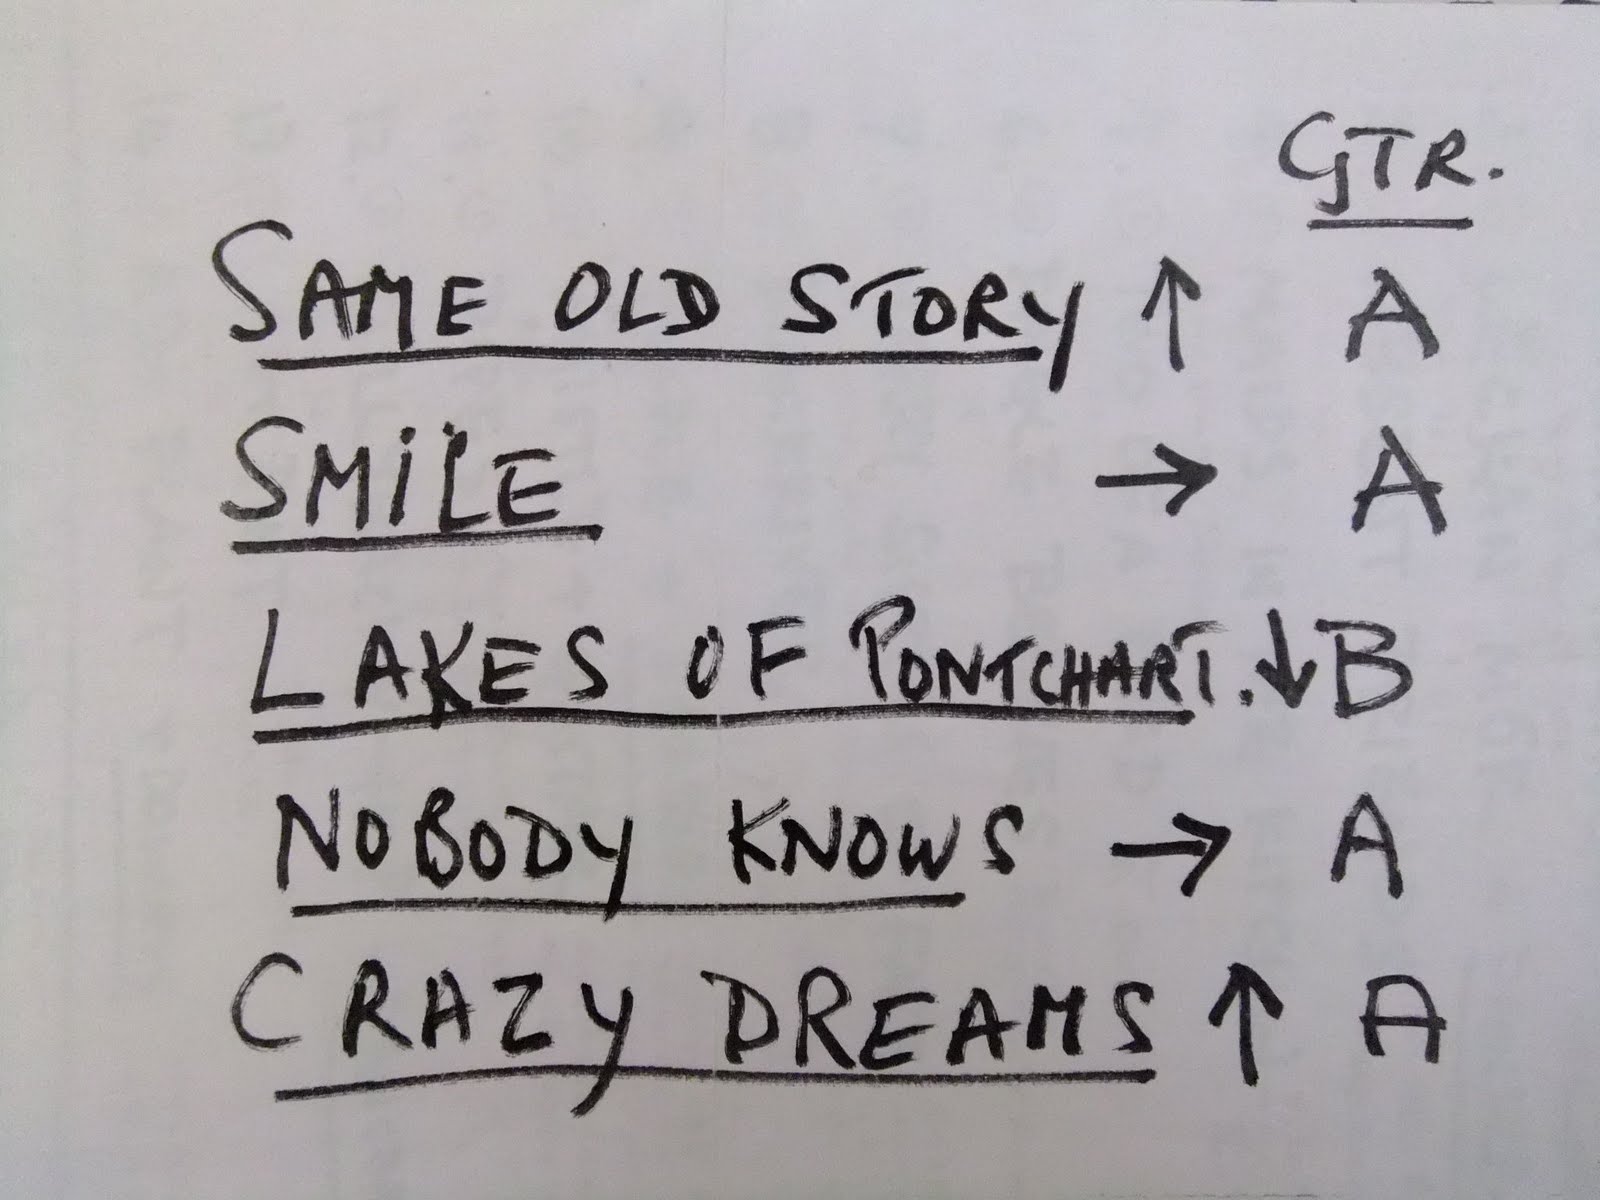 GTR.
SAME OLD STORY ↑ A
SMILE → A
LAKES OF PONTCHART. ↓ B
NOBODY KNOWS → A
CRAZY DREAMS ↑ A